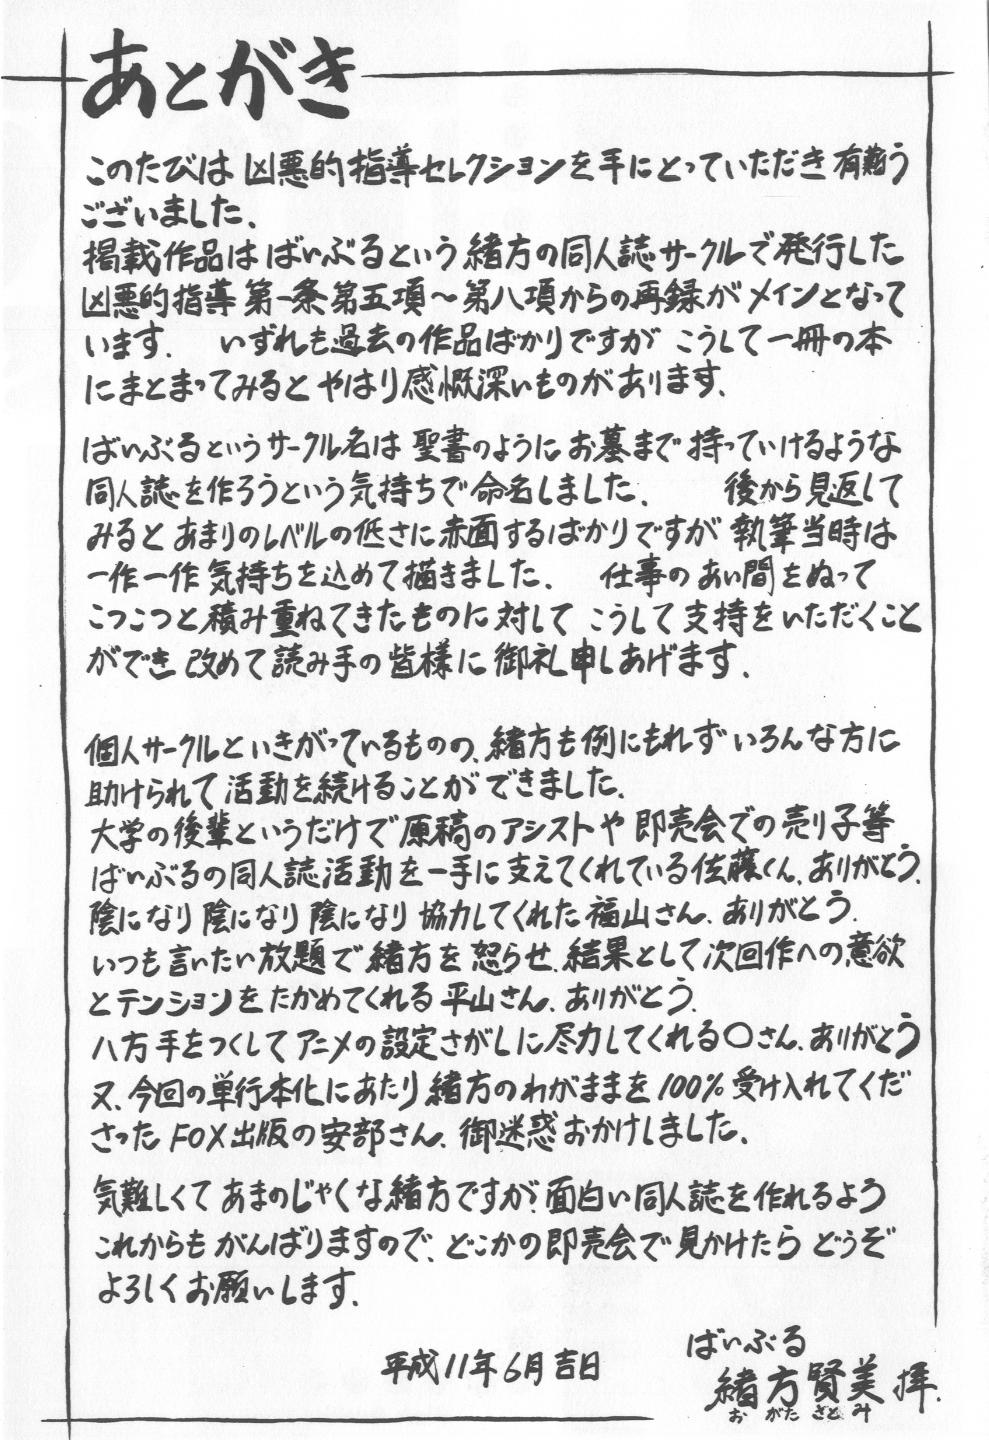 あとがき
このたびは 凶悪的指導セレクションを手にとっていただき有難う
ございました.
掲載作品は ばいぶるという 緒方の同人誌サークルで発行した
凶悪的指導 第一条 第五項～第八項からの再録がメインとなって
います. いずれも過去の作品ばかりですが こうして一冊の本
にまとまってみると やはり感慨深いものがあります.
ばいぶるというサークル名は 聖書のように お墓まで 持っていけるような
同人誌を作ろうという気持ちで 命名しました. 後から見返して
みると あまりのレベルの低さに赤面するばかりですが 執筆当時は
一作一作 気持ちを込めて描きました. 仕事の あい間をぬって
こつこつと積み重ねてきたものに 対して こうして支持をいただくこと
ができ 改めて 読み手の皆様に 御礼申しあげます.
個人サークルといきがっているものの、緒方も例にもれず いろんな方に
助けられて 活動を続けることが できました.
大学の後輩というだけで 原稿のアシストや 即売会での売り子等
ばいぶるの同人誌活動を一手に支えてくれている佐藤くん、ありがとう.
陰になり 陰になり 陰になり 協力してくれた福山さん、ありがとう.
いつも言いたい放題で 緒方を 怒らせ、結果として次回作への意欲
とテンションを たかめてくれる 平山さん、ありがとう.
八方手をつくして アニメの設定さがしに尽力してくれる○さん、ありがとう
又、今回の単行本化にあたり 緒方のわがままを 100% 受け入れてくだ
さった FOX出版の安部さん、御迷惑おかけしました.
気難しくて あまのじゃくな緒方ですが、面白い同人誌を作れるよう
これからも がんばりますので、どこかの即売会で見かけたら どうぞ
よろしくお願いします.
平成11年6月吉日
ばいぶる
緒方賢美 拝.
おがた さとみ